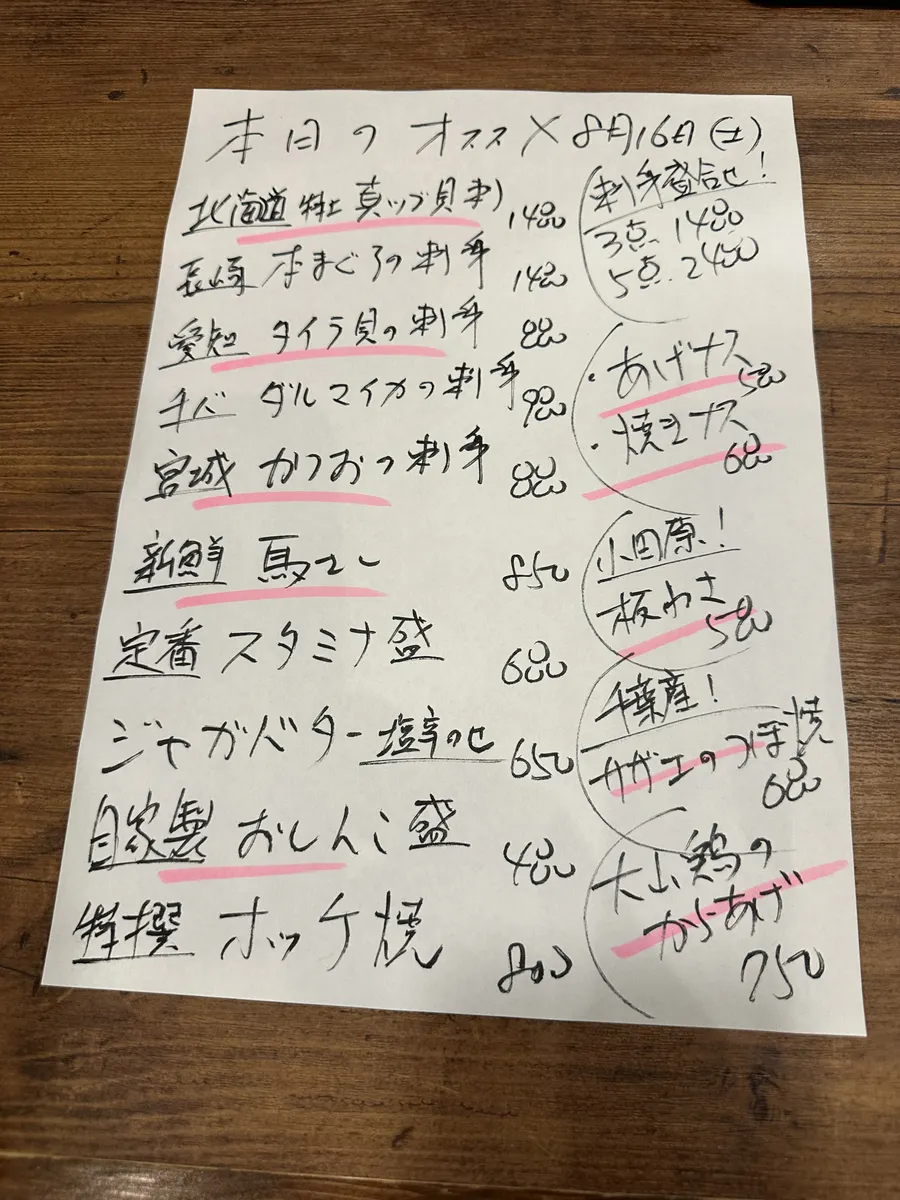 本日のオススメ 8月16日(土)
北海道 特上 真ツブ貝刺 1400
長崎 本まぐろの刺身 1400
愛知 タイラ貝の刺身 800
チバ ダルマイカの刺身 900
宮城 かつおの刺身 800
新鮮 馬刺し 850
定番 スタミナ盛 600
ジャガバター 塩辛のせ 650
自家製 おしんこ盛 400
特撰 ホッケ焼 800
刺身盛合せ!
3点 1400
5点 2400
・あげナス 500
・焼きナス 600
小田原!
板わさ 500
千葉産!
サザエのつぼ焼 600
大山鶏の
からあげ
750